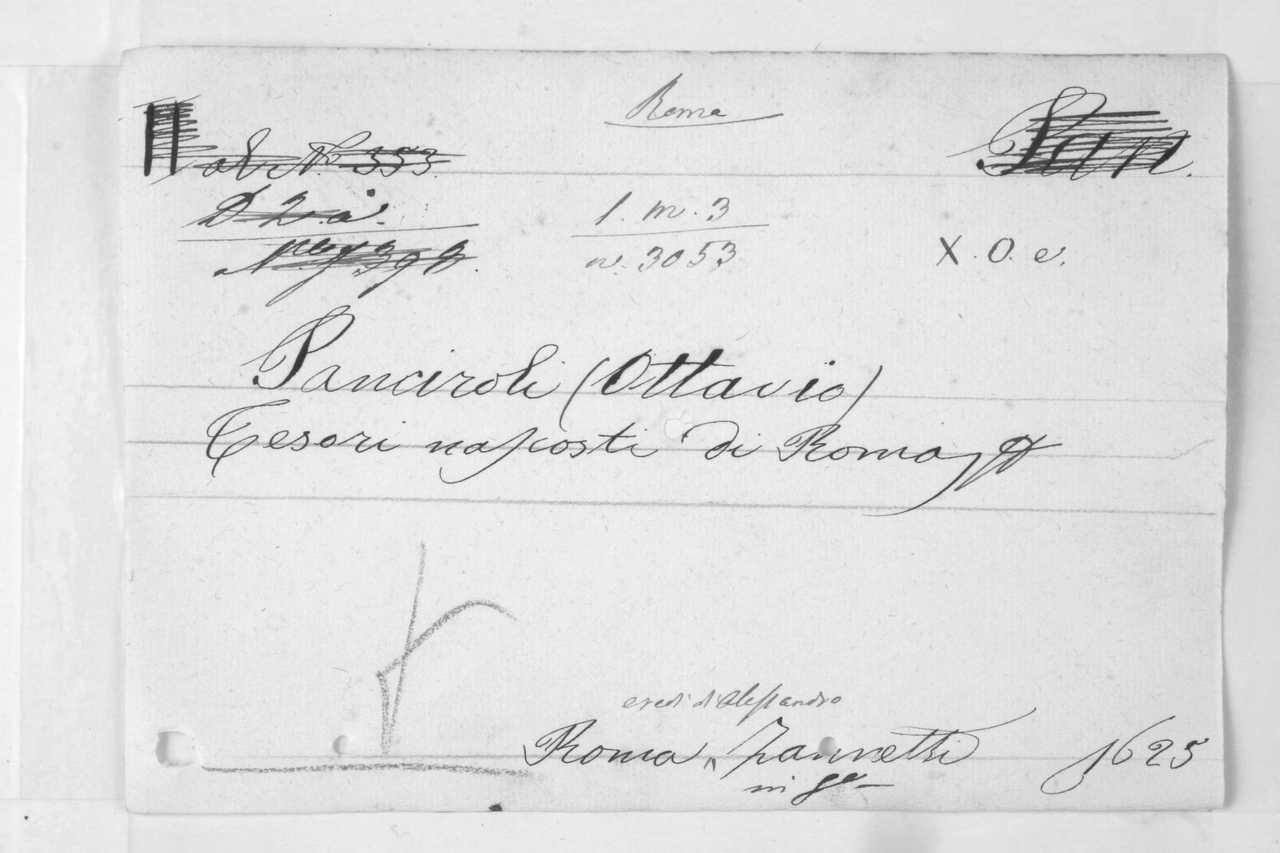 Roma
Pan.
N.° 353
1. m. 3
n. 3053
X. O. e.
Panciroli (Ottavio)
Tesori nascosti di Roma
eredi d'Alessandro
Roma, Zannetti 1625
in 8°